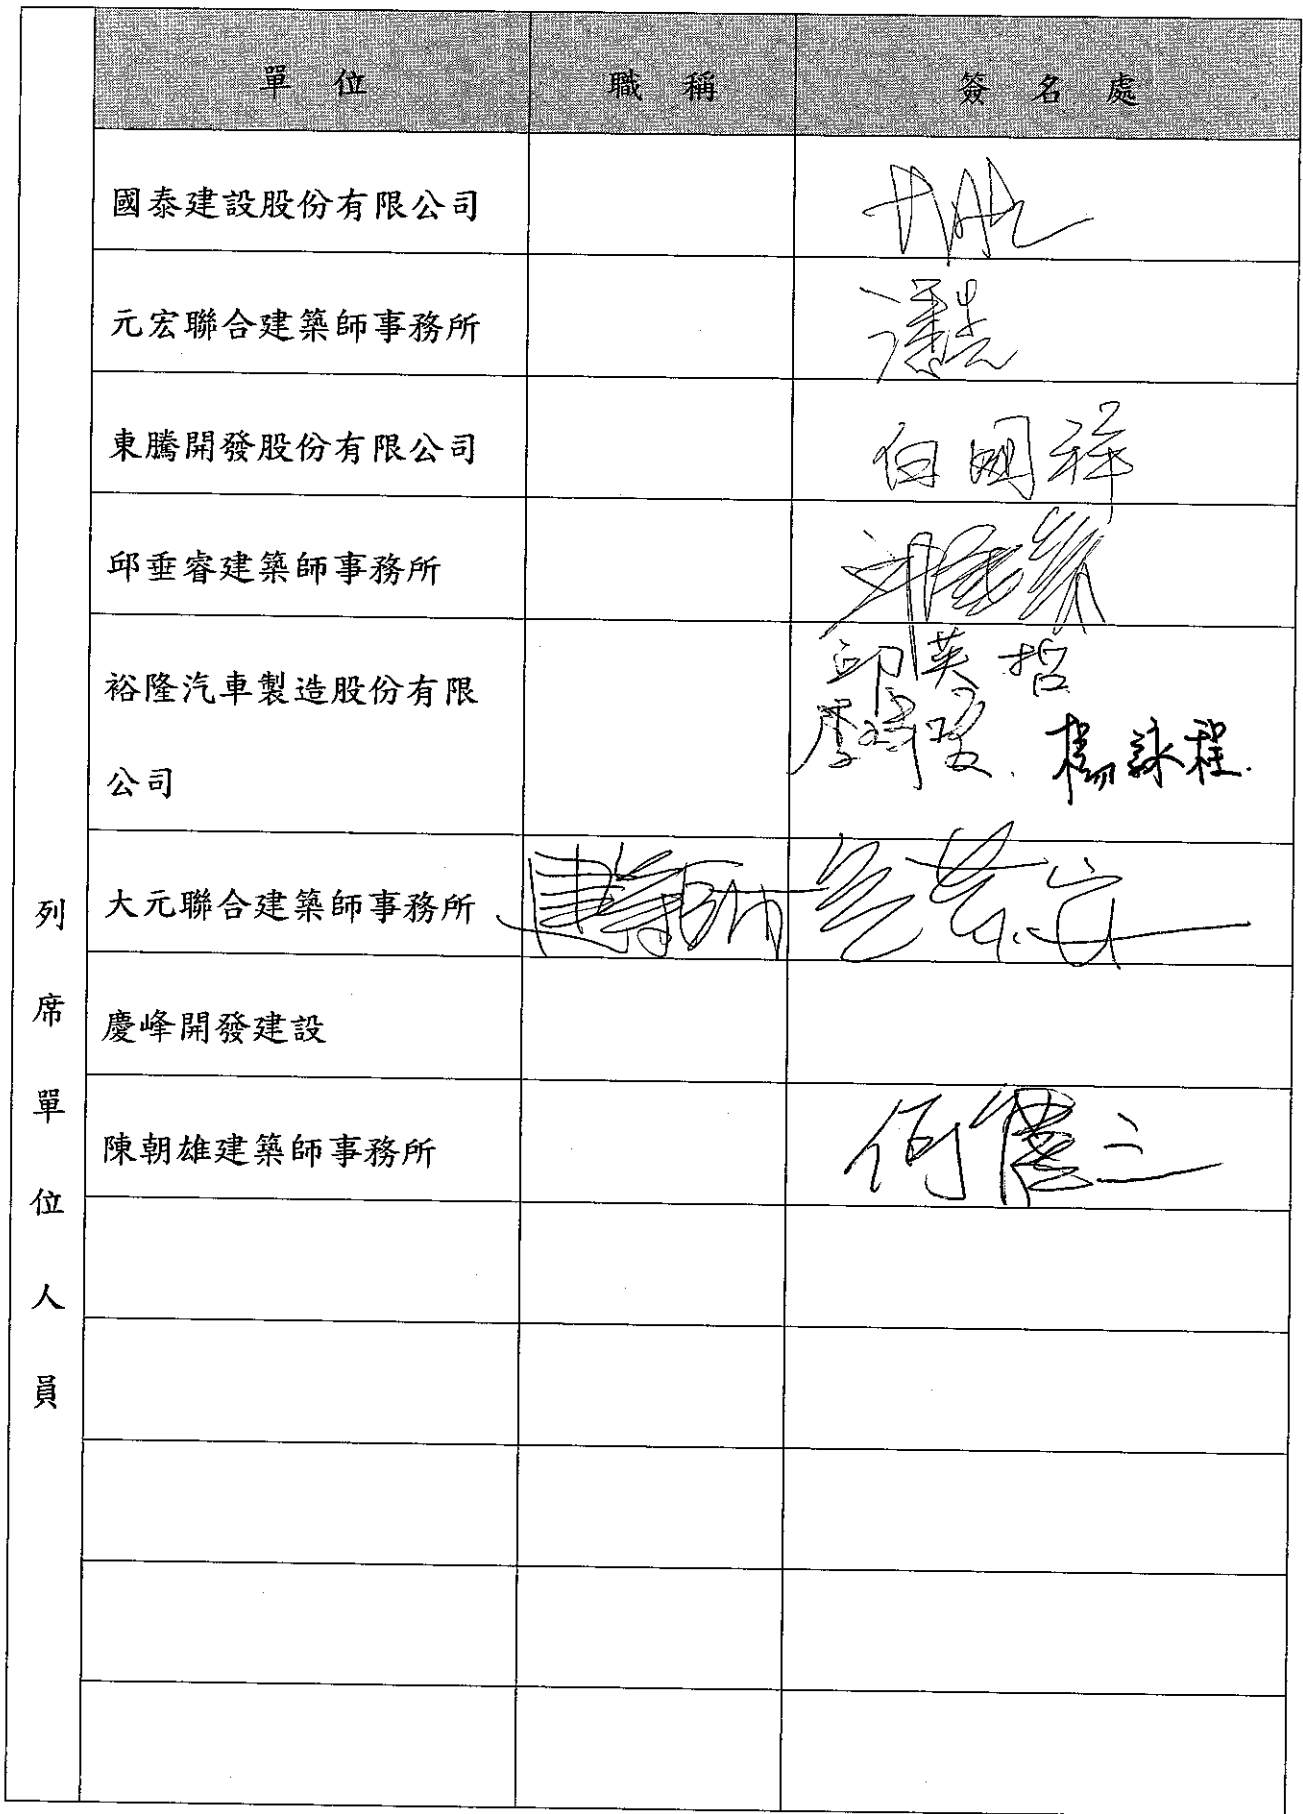 單位 職稱 簽名處
國泰建設股份有限公司
元宏聯合建築師事務所
東騰開發股份有限公司 白國祥
邱垂睿建築師事務所
邱英哲
裕隆汽車製造股份有限
公司
楊詠程.
大元聯合建築師事務所 建築師
慶峰開發建設
陳朝雄建築師事務所
列席單位人員